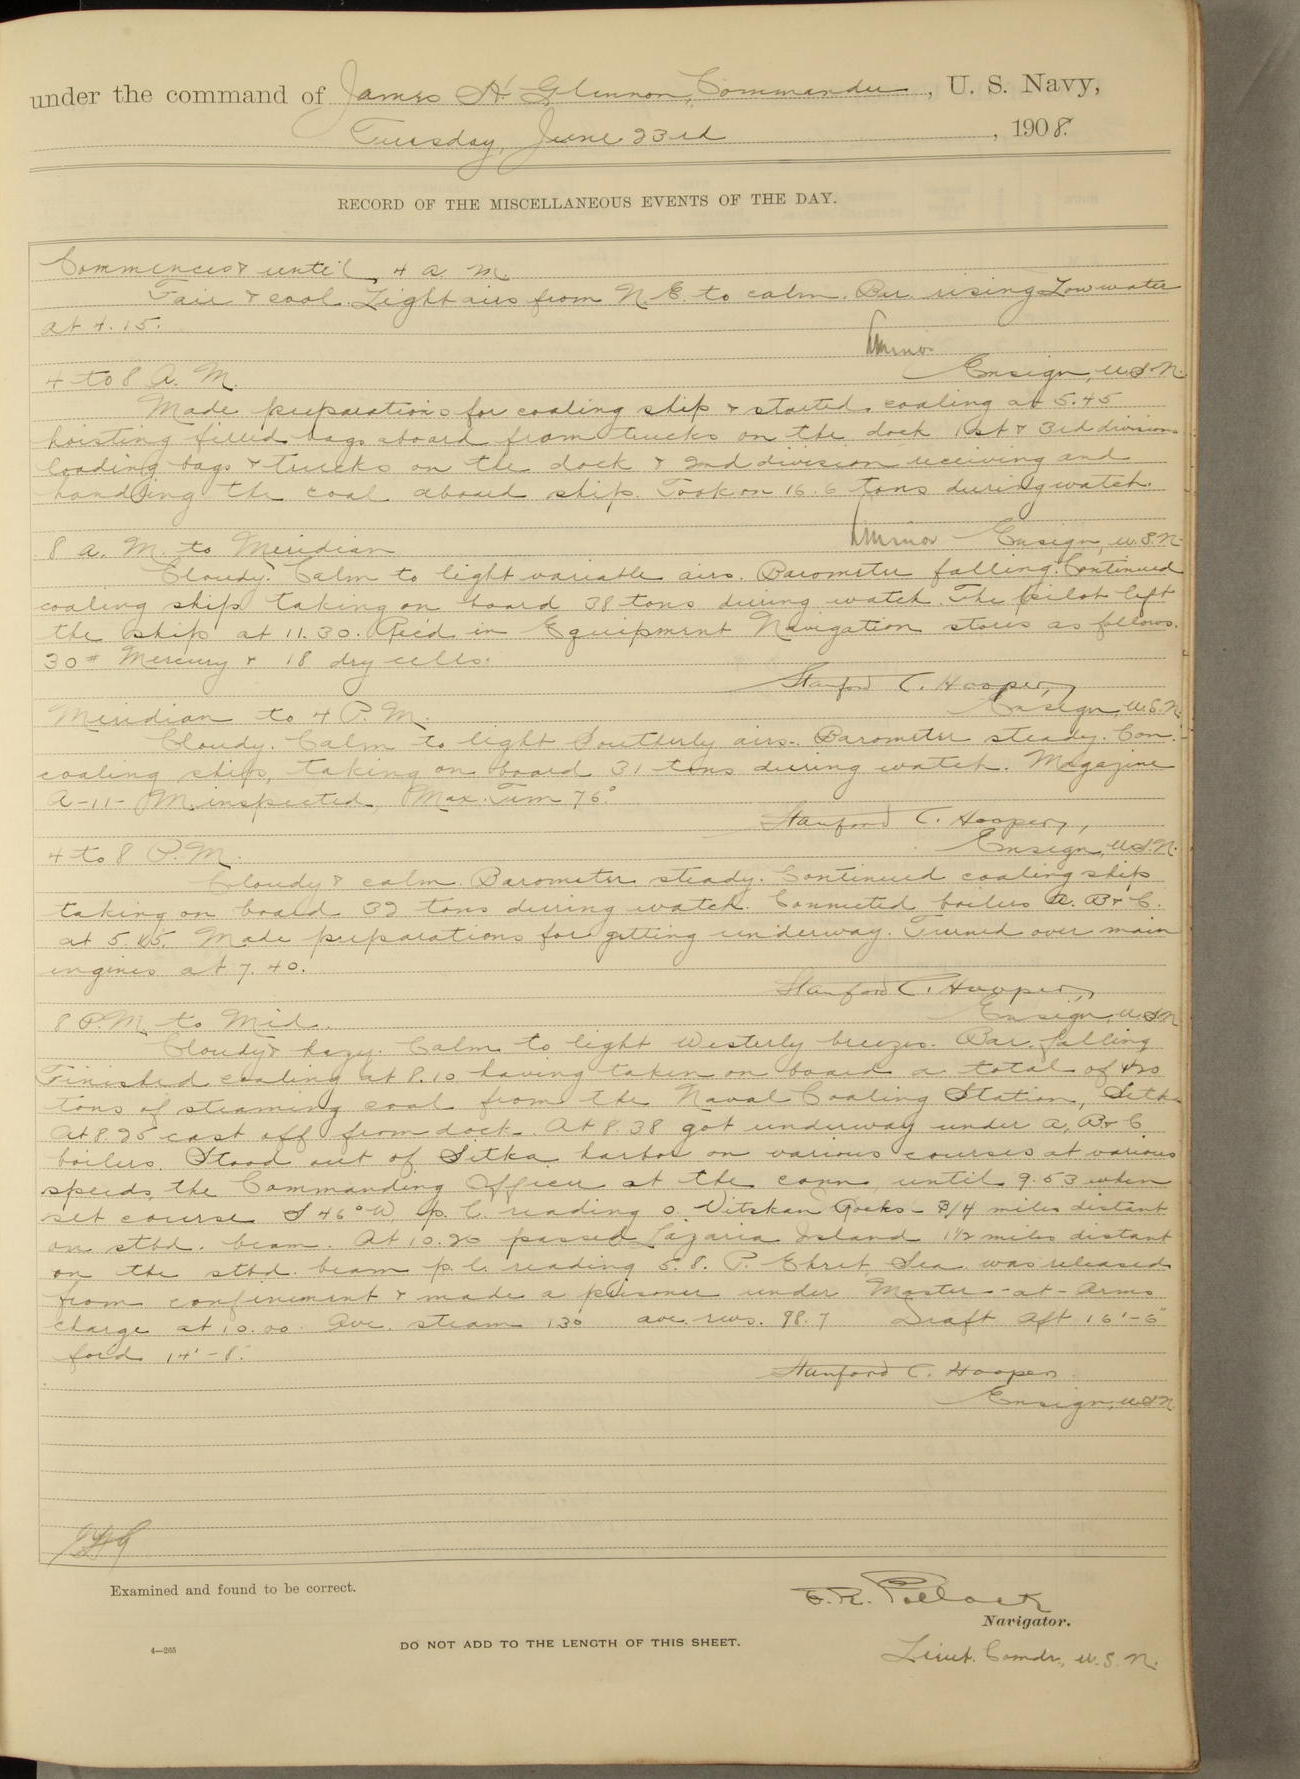 under the command of James H. Glennon, Commander, U. S. Navy,
Tuesday, June 23rd, 1908.
RECORD OF THE MISCELLANEOUS EVENTS OF THE DAY.
Commences & until 4 a. m.
Fair & cool. Light airs from N. E. to calm. Bar. rising Low water
at 4.15.
Ensign, U.S.N.
4 to 8 A. M.
Made preparations for coaling ship & started coaling at 5.45
hoisting filled bags aboard from trucks on the dock 1st & 3rd divisions
loading bags & trucks on the dock & 2nd division receiving and
handling the coal aboard ship. Took on 16.6 tons during watch.
Ensign, U.S.N.
8 a. M. to Meridian
Cloudy. Calm to light variable airs. Barometer falling. Continued
coaling ship taking on board 38 tons during watch. The pilot left
the ship at 11.30. Rec'd in Equipment Navigation stores as follows.
30# Mercury & 18 dry cells.
Stanford C. Hooper,
Ensign, U.S.N.
Meridian to 4 P. M.
Cloudy. Calm to light Southerly airs. Barometer steady. Con.
coaling ship, taking on board 31 tons during watch. Magazine
A-11-M inspected, Max. Tem 76°
Stanford C. Hooper,
Ensign, U.S.N.
4 to 8 P. M.
Cloudy & calm. Barometer steady. Continued coaling ship
taking on board 32 tons during watch. Connected boilers A. B & C.
at 5.45. Made preparations for getting underway. Turned over main
engines at 7.40.
Stanford C. Hooper,
Ensign, U.S.N.
8 P.M. to Mid.
Cloudy & hazy. Calm to light Westerly breezes. Bar. falling
Finished coaling at 8.10 having taken on board a total of 420
tons of steaming coal from the Naval Coaling Station, Sitka
At 8.25 cast off from dock. At 8.38 got underway under A, B & C
boilers. Stood out of Sitka harbor on various courses at various
speeds, the Commanding Officer at the conn, until 9.53 when
set course S 46° W, p. l. reading 0. Vitskari Rocks - 3/4 miles distant
on stbd. beam. At 10.20 passed Lazaria Island 1 1/2 miles distant
on the stbd. beam p. l. reading 5.8. P. Ehret, Sea. was released
from confinement & made a prisoner under Master-at-Arms
charge at 10.00. Ave. steam 130 ave. revs. 98.7 Draft Aft 16'-6"
for'd 14'-8".
Stanford C. Hooper
Ensign, U.S.N.
JHG
Examined and found to be correct.
E. R. Pollock
Navigator.
Lieut. Comdr., U.S.N.
4—265
DO NOT ADD TO THE LENGTH OF THIS SHEET.